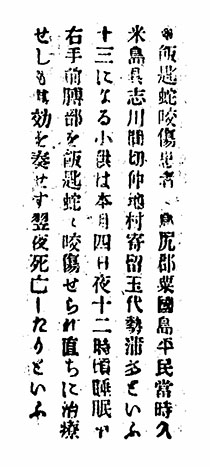 飯匙蛇咬傷患者　島尻郡粟國島平民當時久
米島具志川間切仲地村寄留玉代勢蒲多といふ
十三になる小供は本月四日夜十二時頃睡眠中
右手前膊部を飯匙蛇に咬傷せられ直ちに治療
せしも其効を奏せす翌夜死亡したりといふ